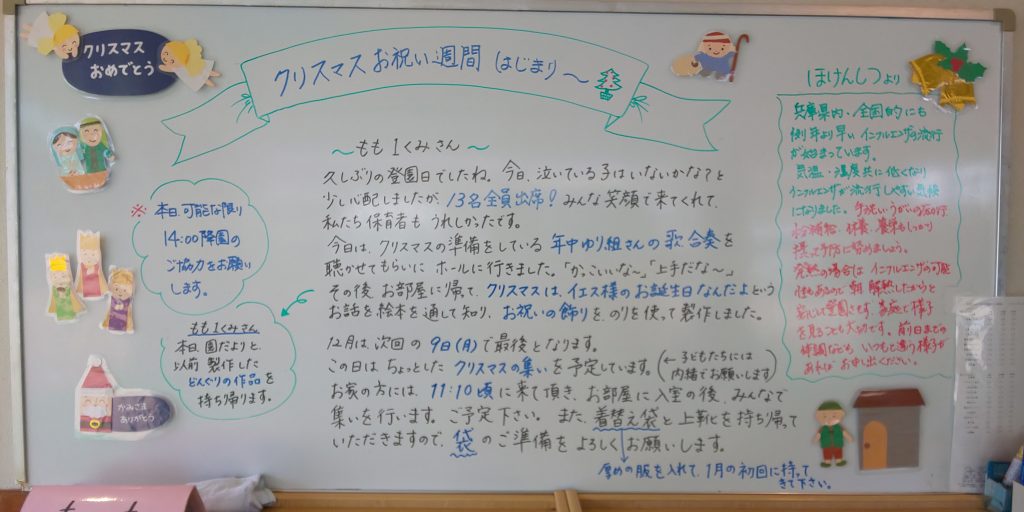 クリスマス
おめでとう
クリスマスお祝い週間 はじまり〜
〜もも1くみさん〜
久しぶりの登園日でしたね。今日、泣いている子はいないかな?と
少し心配しましたが、13名全員出席!みんな笑顔で来てくれて、
私たち保育者も うれしかったです。
今日は、クリスマスの準備をしている 年中ゆり組さんの歌合奏を
聴かせてもらいに ホールに行きました。「かっこいいな〜」「上手だな〜」
その後、お部屋に帰って、クリスマスは、イエス様のお誕生日なんだよという
お話を絵本を通して知り、お祝いの飾りを のりを使って製作しました。
12月は、次回の 9日(月)で最後となります。
この日は ちょっとした クリスマスの集いを予定しています。(←子どもたちには
内緒でお願いします)
お家の方には、11:10頃に来て頂き、お部屋に入室の後、みんなで
集いを行います。ご予定下さい。また、着替え袋と上靴を持ち帰って
いただきますので、袋のご準備を よろしくお願いします。
厚めの服を入れて、1月の初回に持って
きて下さい。
※本日、可能な限り
14:00降園の
ご協力をお願い
します。
もも1くみさん
本日、園だよりと、
以前 製作した
どんぐりの作品を
持ち帰ります。
かみさま
ありがとう
ほけんしつより
兵庫県内・全国的にも
例年より早い インフルエンザの流行
が始まっています。
気温・湿度共に低くなり
インフルエンザが流行しやすい気候
になりました。手洗い・うがいの
水分補給、休養、栄養もしっかり
摂って予防に努めましょう。
発熱の場合は インフルエンザの可能
性もあるので、朝 解熱したからと
登園さず、家庭で様子
を見ることも大切です。前日までの
体調なども いつもと違う様子が
あれば お申し出ください。